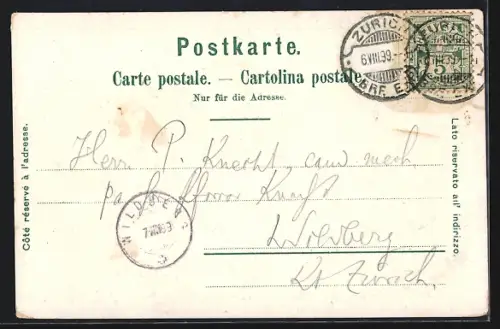 Postkarte.
Carte postale. — Cartolina postale
Nur für die Adresse.
ZÜRICH
6.VIII.99.
BRF. EX
5
Côté réservé à l'adresse.
Lato riservato all' indirizzo.
Herrn P. Knecht, cand. mech.
p. a. Pfarrer Knecht
Wildberg
Kt Zürich.
WILDBERG